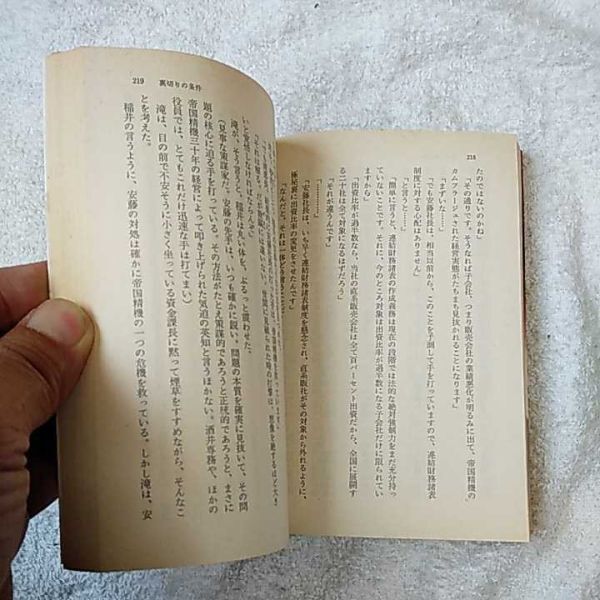 218
たのではないのかね」
「その通りです。そうなれば子会社、つまり販売会社の業績悪化が明るみに出て、帝国精機の
カムフラージュされた経営実態がたちまち見抜かれることになります」
「まずいな……」
「でも安藤社長は、相当以前から、このことを予測して手を打っていますので、連結財務諸表
制度に対する心配はありません」
「と言うと……」
「簡単に言えば、連結財務諸表の作成義務は現在の段階では法的な絶対強制力をまだ充分持っ
ていないことです。それに、今のところ対象は出資比率が過半数になる子会社だけに限られてい
ますから」
「出資比率が過半数なら、当社の直系販売会社は全て百パーセント出資だから、全国に展開す
る二十社は全て対象になるはずだろう」
「それが違うんです」
「…………」
「安藤社長は、いち早く連結財務諸表制度を懸念され、直系販社がその対象から外れるように、
極秘裏に出資比率の変更をさせたんです」
「なんだと、それは一体どう言う
219 裏切りの条件
いと覚悟しなければならんで
滝が、そう言って、細い体を、ぶるっと震わせた。
(見事な策謀家だ。安藤の先手は、いつも確かに鋭い、問題の本質を確実に見抜いて、その問
題の核心に迫る手を打っている。その方法がたとえ策謀的であろうと正統的であろうと、まさに
帝国精機三十年の経営によって叩き上げられた気迫の英知と言うほかない。酒井専務や、ほかの
役員では、とてもこれだけ迅速な手は打てまい)
滝は、目の前で不安そうに小さく坐っている資金課長に黙って煙草をすすめながら、そんなこ
とを考えた。
稲井の言うように、安藤の対処は確かに帝国精機の一つの危機を救っている。しかし滝は、安